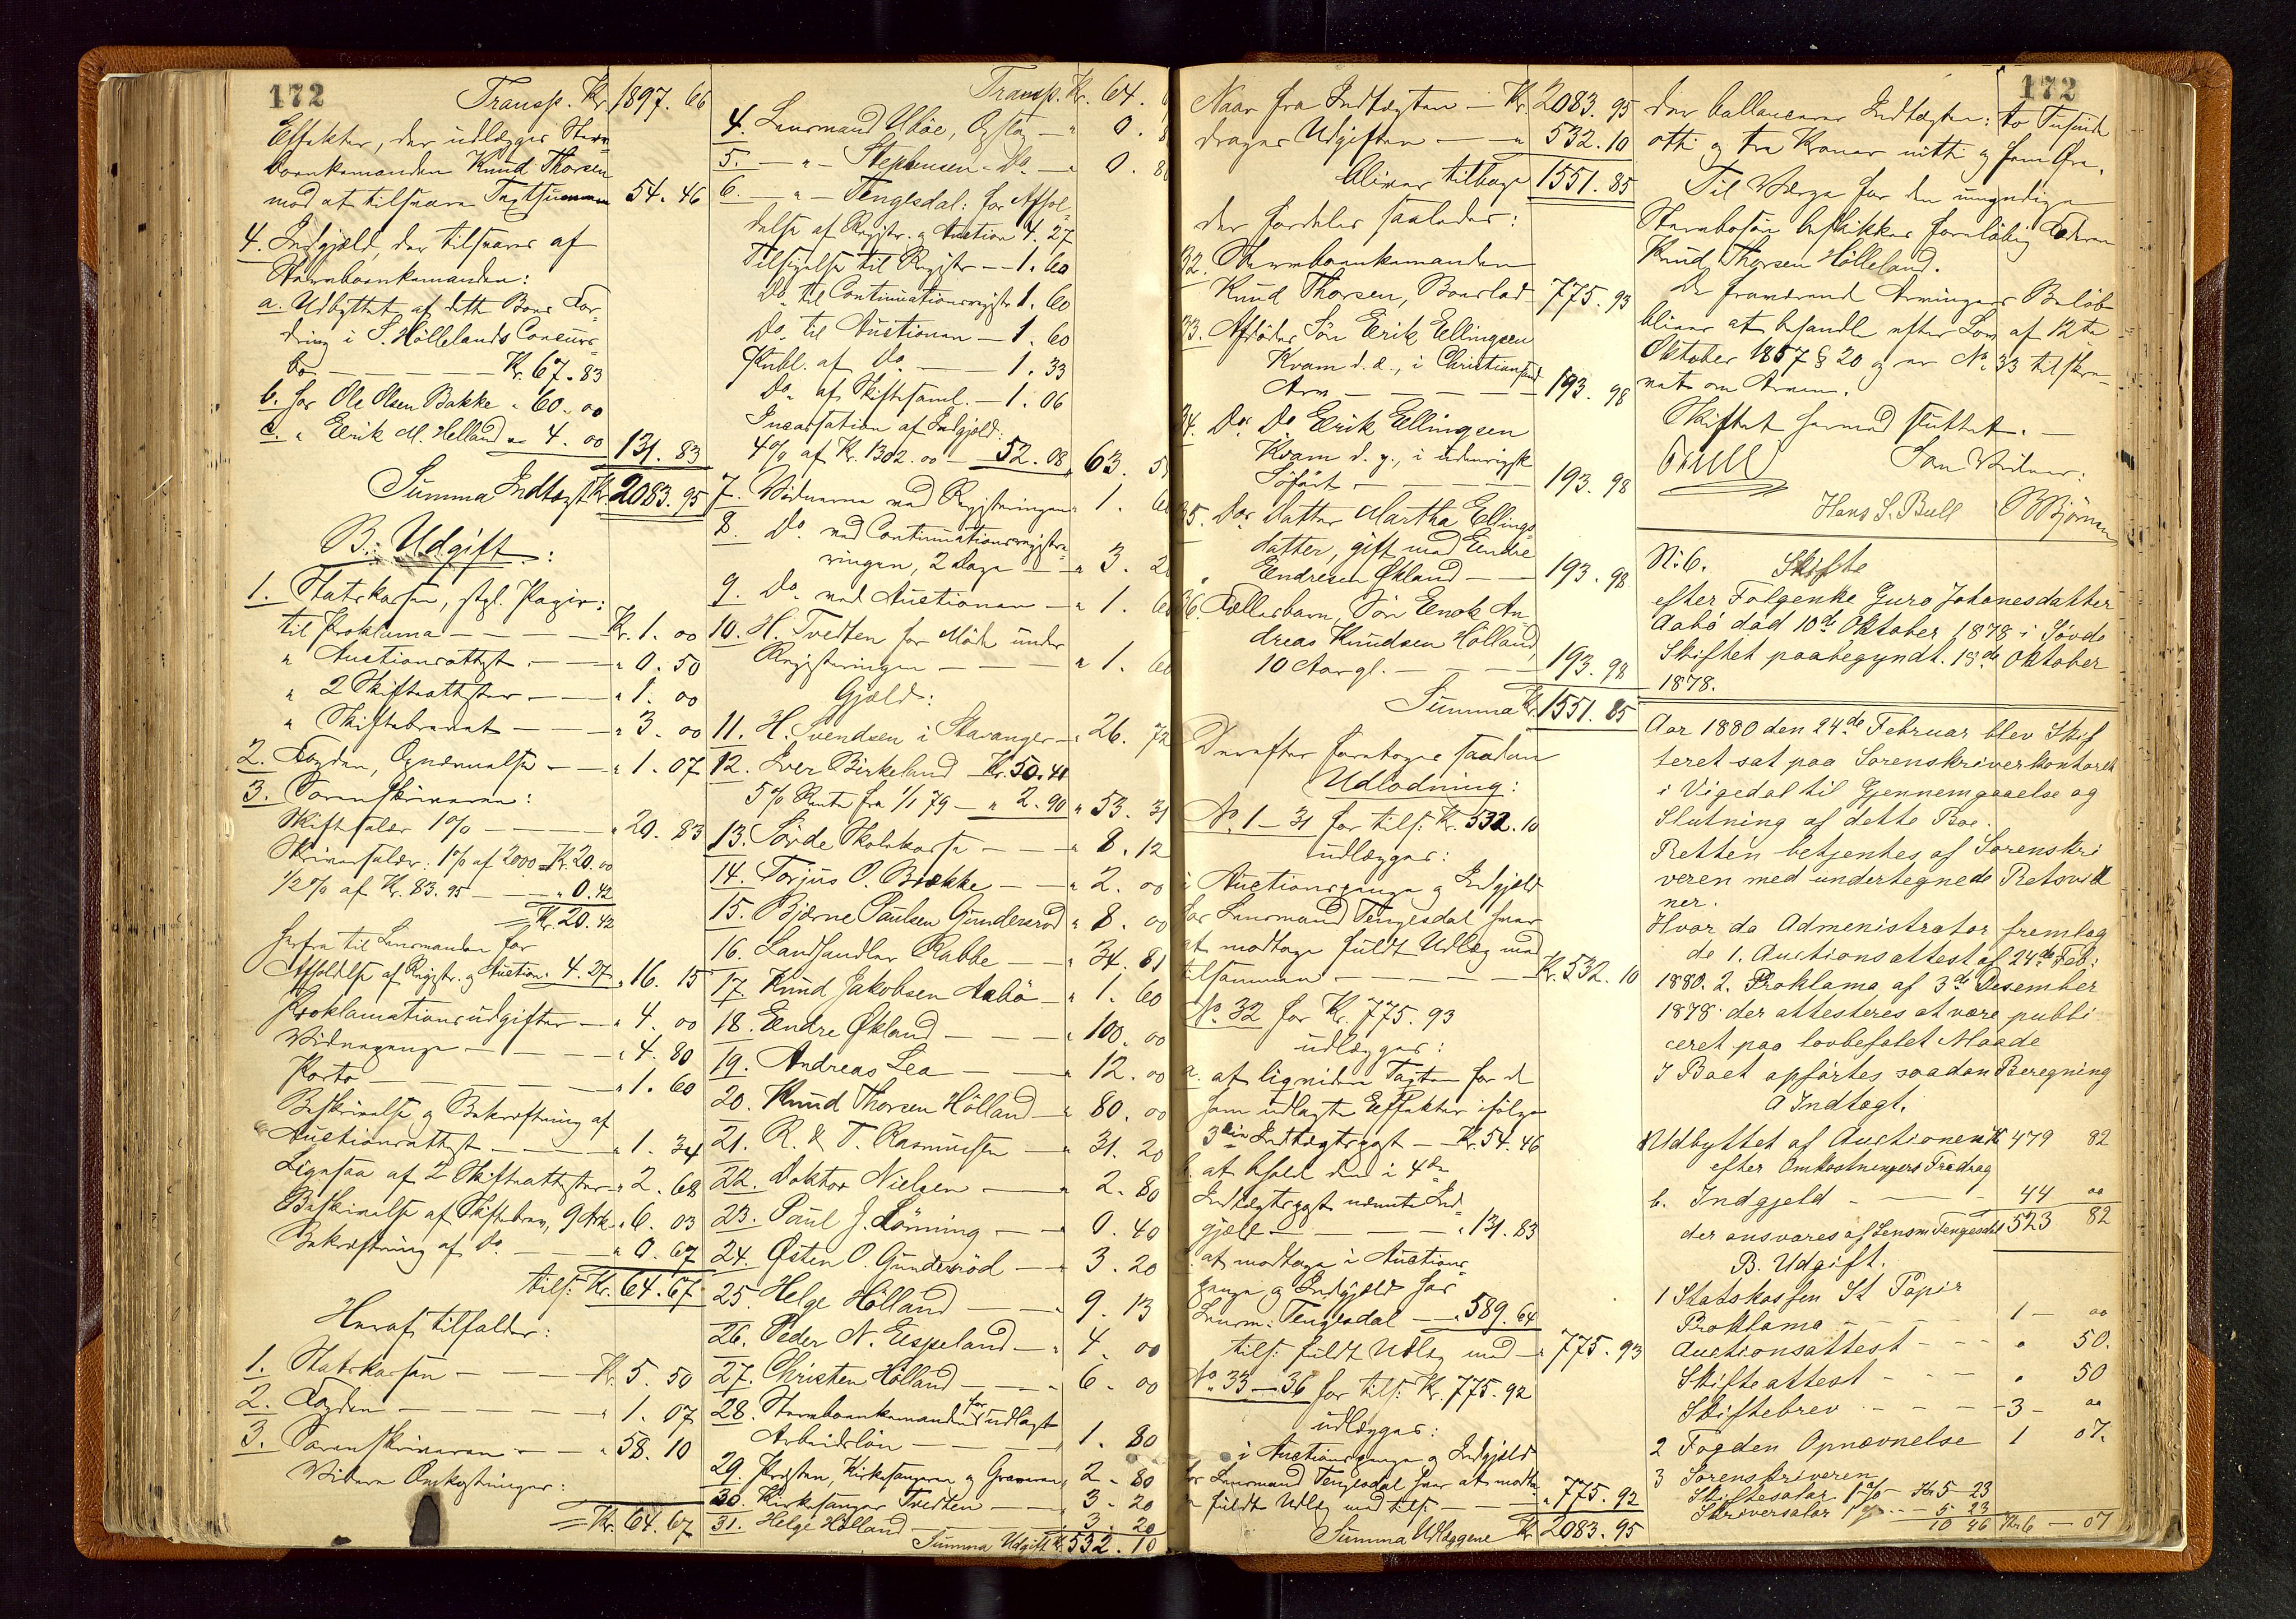 172
Transp. Kr. 1897. 66
Effekter, der udlægges Sterv-
boenkemanden Knud Thorsen
mod at tilsvare Taxtsummen 54. 46
4. Indgjæld, der tilsvares af
Stervboenkemanden:
a. Udbyttet af dette Boes For-
dring i S. Höllelands Concurs-
bo — Kr. 67. 83
b. hos Ole Olsen Bakke " 60. 00
c. " Eerik M. Helland " 4. 00 131. 83
Summa Indtægt Kr. 2083. 95
B. Udgift:
1. Statskassen, stpl. Papir:
til Proklama — Kr. 1. 00
" Auctionsattest — " 0. 50
" 2 Skifteattester — " 1. 00
" Skiftebrevet — " 3. 00
2. Fogden, Opnævnelse — " 1. 07
3. Sorenskriveren:
Skiftesalær 1% — " 20. 83
Skriversalær: 1% af 2000 = Kr. 20. 00
1/2 % af Kr. 83. 95 — " 0. 42
= Kr. 20. 42
herfra til Lensmanden for
Afholdelse af Registr. og Auction " 4. 27 " 16. 15
Proklamationsudgifter — " 4. 00
Vidnepenge — " 4. 80
Porto — " 1. 60
Beskrivelse og Bekræftning af
Auctionsattest — " 1. 34
Ligesaa af 2 Skifteattester — " 2. 68
Beskrivelse af Skiftebrev, 9 Ark " 6. 03
Bekræftning af Do — " 0. 67
tils. Kr. 64. 67
Heraf tilfalder:
1. Statskassen — Kr. 5. 50
2. Fogden — " 1. 07
3. Sorenskriveren — " 58. 10
= Kr. 64. 67
Videre Omkostninger:
Transp. Kr. 64.
4. Lensmand Uböe, Opslag — " 0. 8
5. — " — Stephensen — Do — " 0. 80
6. — " — Tengesdal: for Afhol-
delse af Registr. og Auction 4. 27
Tilsigelse til Registr — 1. 60
Do til Continuationsregistr 1. 60
Do til Auctionen — 1. 60
Publ. af Do — 1. 33
Do af Skiftesaml. — 1. 06
Incassation af Indgjeld:
4% af Kr. 1302. 00 — 52. 08 63. 5
7. Vidnerne ved Registreringen " 1. 60
8. Do ved Continuationsregistre-
ringen, 2 Dage — " 3. 20
9. Do ved Auctionen — " 1. 60
10. H. Tvedten for Möde under
Registreringen — " 1. 60
Gjæld:
11. H. Svendsen i Stavanger — " 26. 72
12. Iver Birkeland Kr. 50. 41
5% Rente fra 1/1 79 — " 2. 90 " 53. 31
13. Sövde Skolekasse — " 8. 12
14. Torjus O. Bræкke — " 2. 00
15. Bjærne Paulsen Gunderröd " 8. 00
16. Landhandler Rabbe — " 34. 81
17. Knud Jakobsen Aabö — " 1. 60
18. Endre Økland — " 100. 00
19. Andreas Lea — " 12. 00
20. Knud Thorsen Hölland — " 80. 00
21. R. & T. Rasmussen — " 31. 20
22. Doktor Nielsen — " 2. 80
23. Paul J. Lönning — " 0. 40
24. Østen O. Gunderröd — " 3. 20
25. Helge Hölland — " 9. 13
26. Peder N. Eespeland — " 4. 00
27. Christen Hölland — " 6. 00
28. Stervboenkemanden for udlagt
Arbeidslön — 1. 80
29. Præsten, Kirkesangeren og Graveren 2. 80
30. Kirkesanger Tvedten — 3. 20
31. Helge Hölland — 3. 20
Summa Udgift Kr. 532. 10
172
Naar fra Indtægten — Kr. 2083. 95
drages Udgiften — " 532. 10
bliver tilbage 1551. 85
der fordeles saaledes:
32. Stervboenkemanden
Knud Thorsen, Boeslod 775. 93
33. Afdödes Sön Eerik Ellingsen
Kvam d. æ., i Christianssand
Arv — 193. 98
34. Do Do Eerik Ellingsen
Kvam d. y., i udenrigsk
Söfart — 193. 98
35. Do Datter Martha Ellings-
datter, gift med Endre
Endresen Økland — 193. 98
36. Fællesbarn, Sön Eenok An-
dreas Knudsen Hölland,
10 Aar gl. — 193. 98
Summa Kr. 1551. 85
Derefter foretoges saadan
Udlodning:
No. 1 — 31 for tils. Kr. 532. 10
udlægges:
i Auctionspenge og Indgjeld
hos Lensmand Tengesdal hvor
at modtage fuldt Udlæg med
tilsammen — Kr. 532. 10
No. 32 for Kr. 775. 93
udlægges:
a. at liqvidere Taxten for de
ham udlagte Effekter ifölge
3die Indtægtspost — Kr. 54. 46
b. at beholde den i 4de
Indtægtspost nævnte Ind-
gjæld — " 131. 83
c. at modtage i Auctions-
penge og Indgjæld hos
Lensm: Tengesdal — " 589. 64
tils: fuldt Udlæg med — " 775. 93
No. 33 — 36 for tils: Kr. 775. 92
udlægges:
i Auctionspenge og Indgjæld
hos Lensmand Tengesdal hvor at modta-
ge fuldt Udlæg med tils: — " 775. 92
Summa Udlæggene Kr. 2083. 95
der ballancerer Indtægten: to Tusinde
otti og tre Kroner nitti og fem Øre.
Til Værge for den umyndige
Stervbosön beskikkes forelöbig Faderen
Knud Thorsen Hölleland.
De fraværende Arvingers Belöb
bliver at behandle efter Lov af 12te
Oktober 1857 § 20 og er No. 33 tilskre-
vet om Arven.
Skiftet hermed sluttet. —
Som Vidner:
Hans S. Bull
B Björnsen
N: 6. Skifte
efter Folgenke Guro Johanesdatter
Aabö död 10de Oktober 1878 i Sövde
Skiftet paabegyndt. 18de Oktober
1878.
Aar 1880 den 24de Februar blev Skif
teret sat paa Sorenskriverkontoret
i Vigedal til Gjennemgaaelse og
Slutning af dette Boe.
Retten betjentes af Sorenskri
veren med undertegnede Retsvid
ner.
Hvor da Admenistrator fremlag
de 1. Auctionsattest af 24de Feb:
1880. 2. Proklama af 3de Desember
1878. der attesteres at være publi
ceret paa lovbefalet Maade
I Boet opförtes saadan Beregning
A Indtægt.
a Udbyttet af Auctionen K 479 82
efter Omkostningers Fradrag
b. Indgjeld — 44 00
der ansvares af Lensm Tengesdal 523 82
B. Udgift.
1 Statskassen St Papir
Proklama — 1 — 00
Auctionsattest — " 50.
Skifteattest — " 50
Skiftebrev — 3 — 00
2 Fogden Opnævnelse 1 07.
3 Sorenskriveren
Skiftesalær 1% Kr 5 23
Skriversalær 1% — 5 23
10 46 Kr 6 — 07